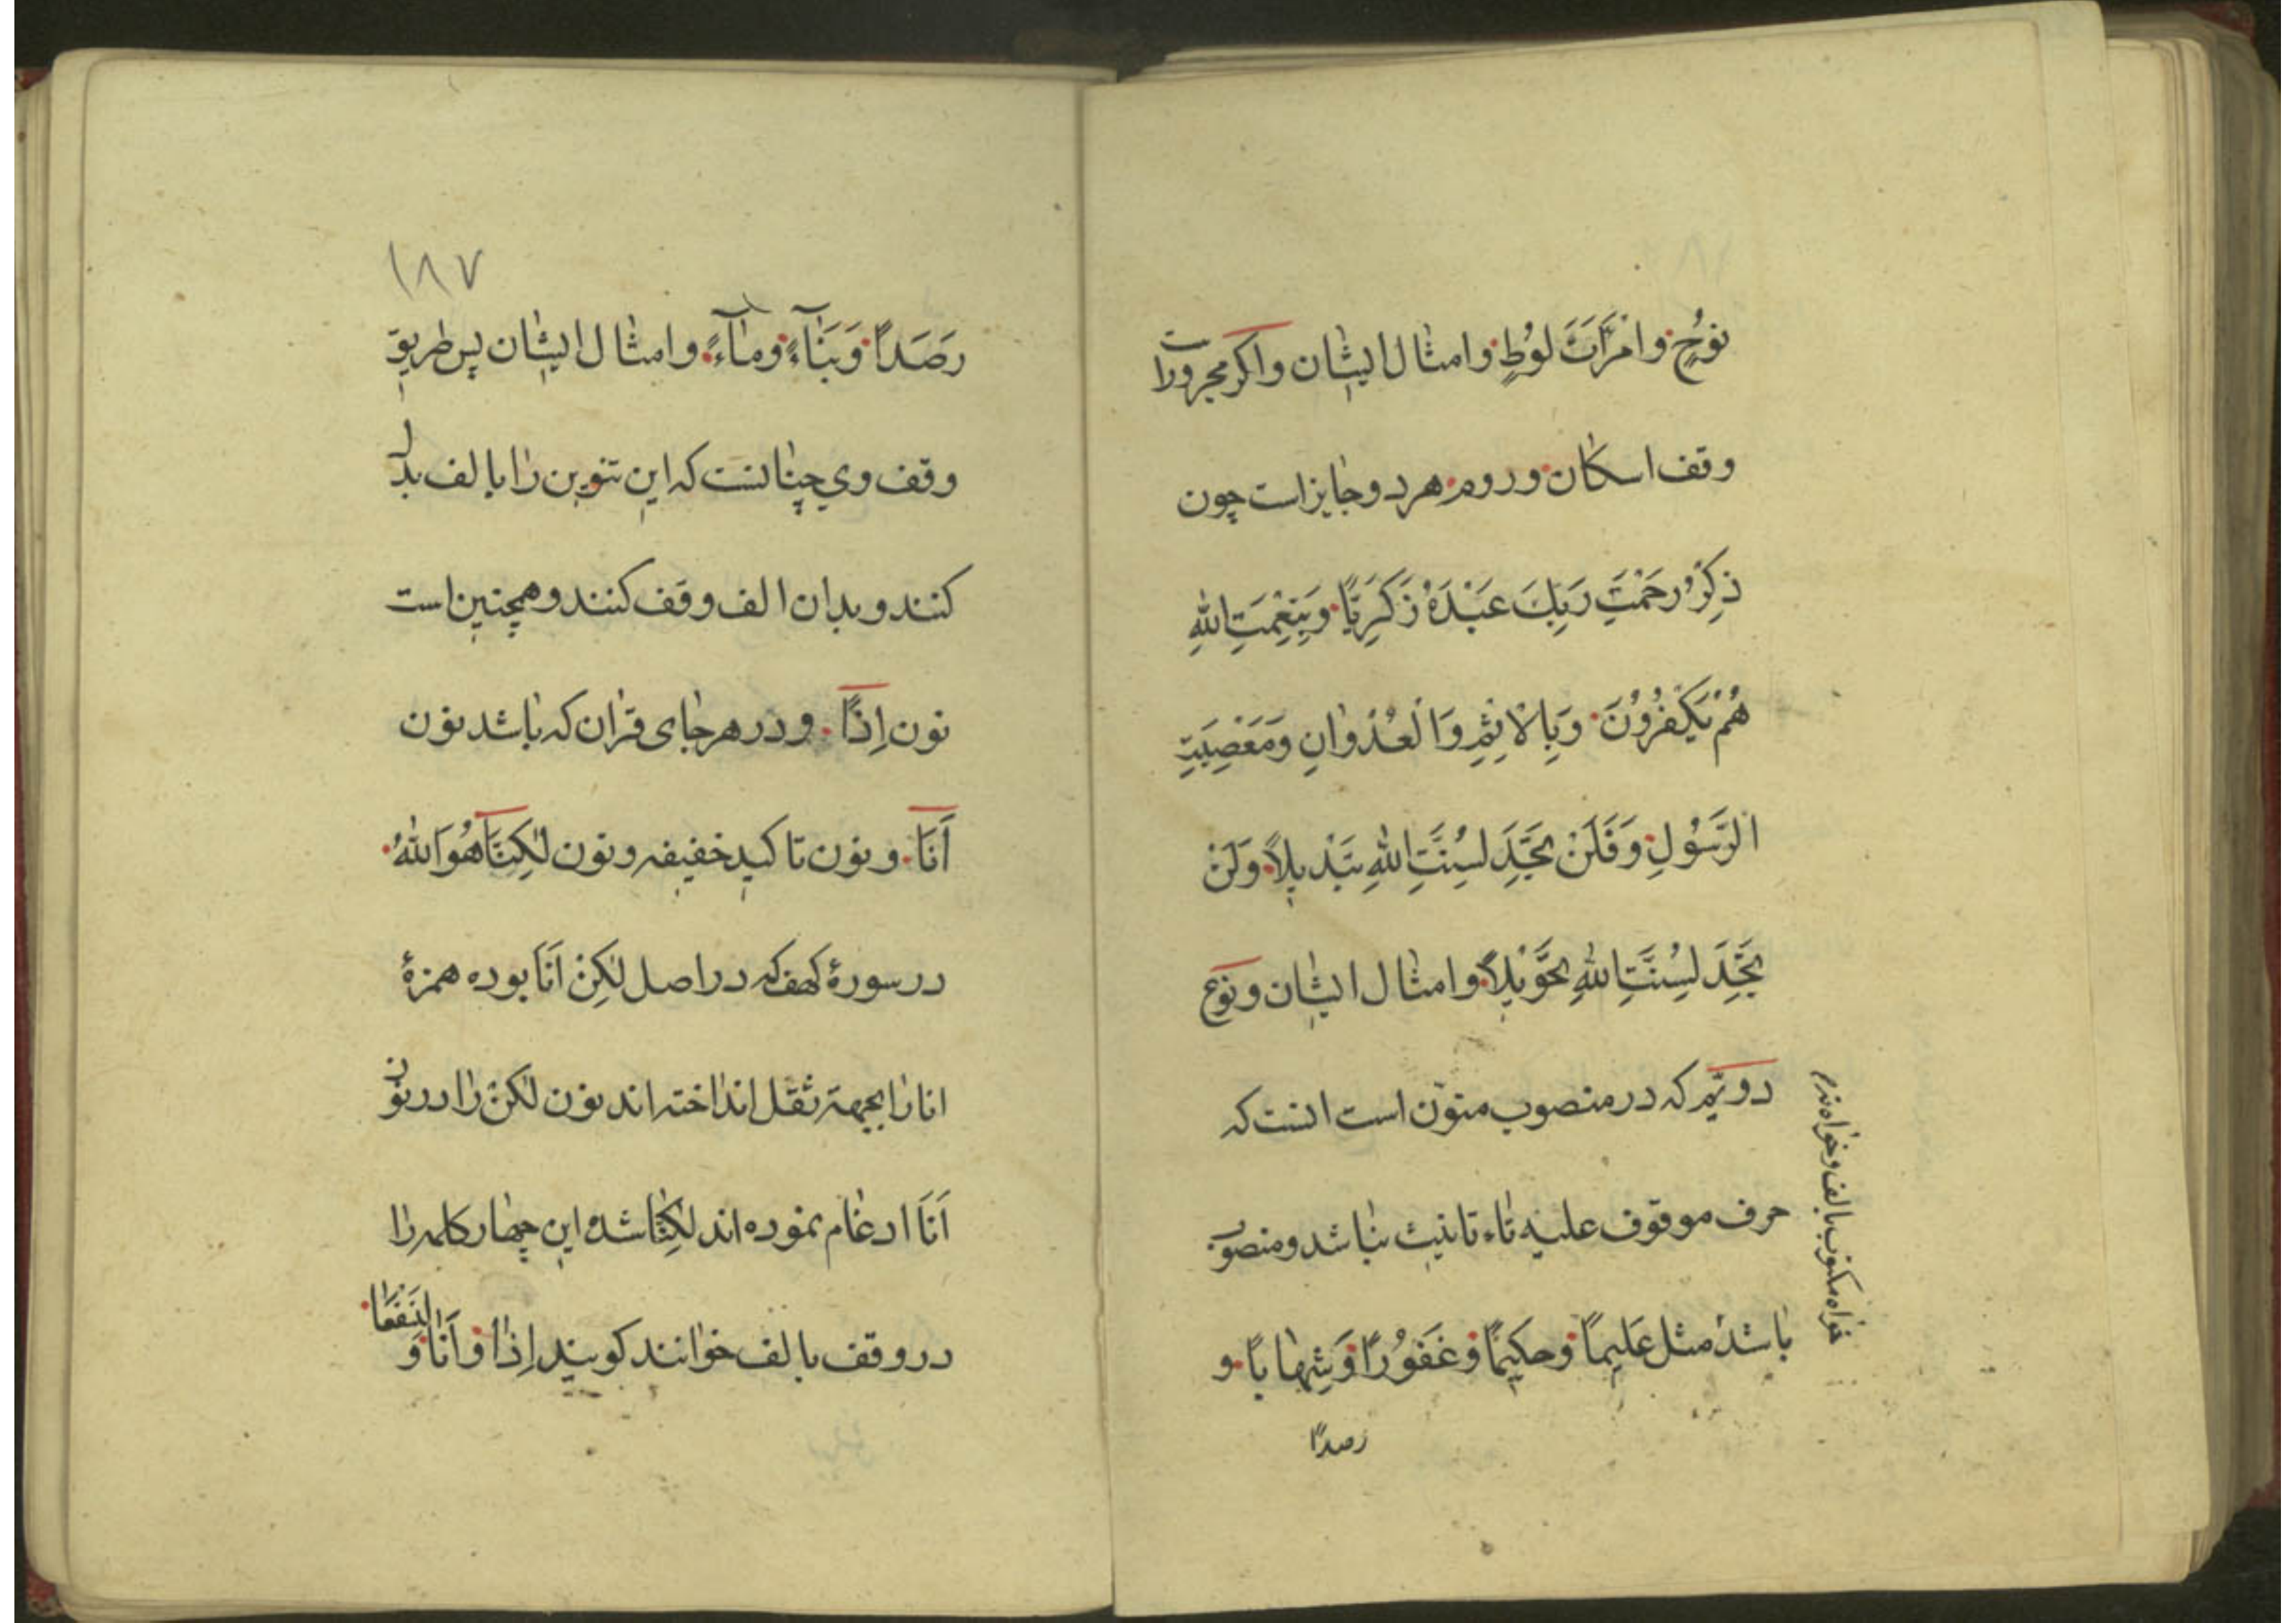 نوُحٍ وامْرَأَتَ لوُطٍ وامثال ایشان واکر مجروراست
وقف اسکان وروم هردو جایزاست چون
ذِکْرُ رَحْمَتِ رَبِّكَ عَبْدَهُ زَکَرِیَّا وَبِنِعْمَتِ اللهِ
هُمْ یَکْفُرُوُنَ وَبِالْاِثْمِ وَالْعُدْوٰانِ وَمَعْصِیَتِ
الرَّسُولِ وَفَلَنْ تَجِدَ لِسُنَّتِ اللهِ تَبْدیلاً وَلَنْ
تَجِدَ لِسُنَّتِ اللهِ تَحْوِیْلاً وامثال ایشان ونوع
دویّم که در منصوب منوّن است انست که
حرف موقوف علیه تاء تانیث نباشد ومنصوب
باشد مثل عَلیماً وحکیماً وغَفوُراً وَشِهاباً و
رصداً
خواه مکتوب بالف وخواه نه
۱۸۷
رَصَداً وَبَنٰآءً ومٰآءً وامثال ایشان پس طریق
وقف وی چنانست که این تنوین را بالف بدل
کنند وبدان الف وقف کنند وهمچنین است
نون اِذاً ودر هرجای قران که باشد نون
اَنَا ونون تاکید خفیفه ونون لٰکِنَّا هُوَ اللهُ
در سورهٔ کهف که در اصل لٰکِنْ اَنَا بوده همزهٔ
انا را بجهته ثقل انداخته اند نون لٰکنْ را در نون
اَنَا ادغام نموده اند لٰکِنَّا شده این چهار کلمه را
در وقف بالف خوانند کویند اِذٰا وَاَنٰا وَ لَنَسْفَعٰا